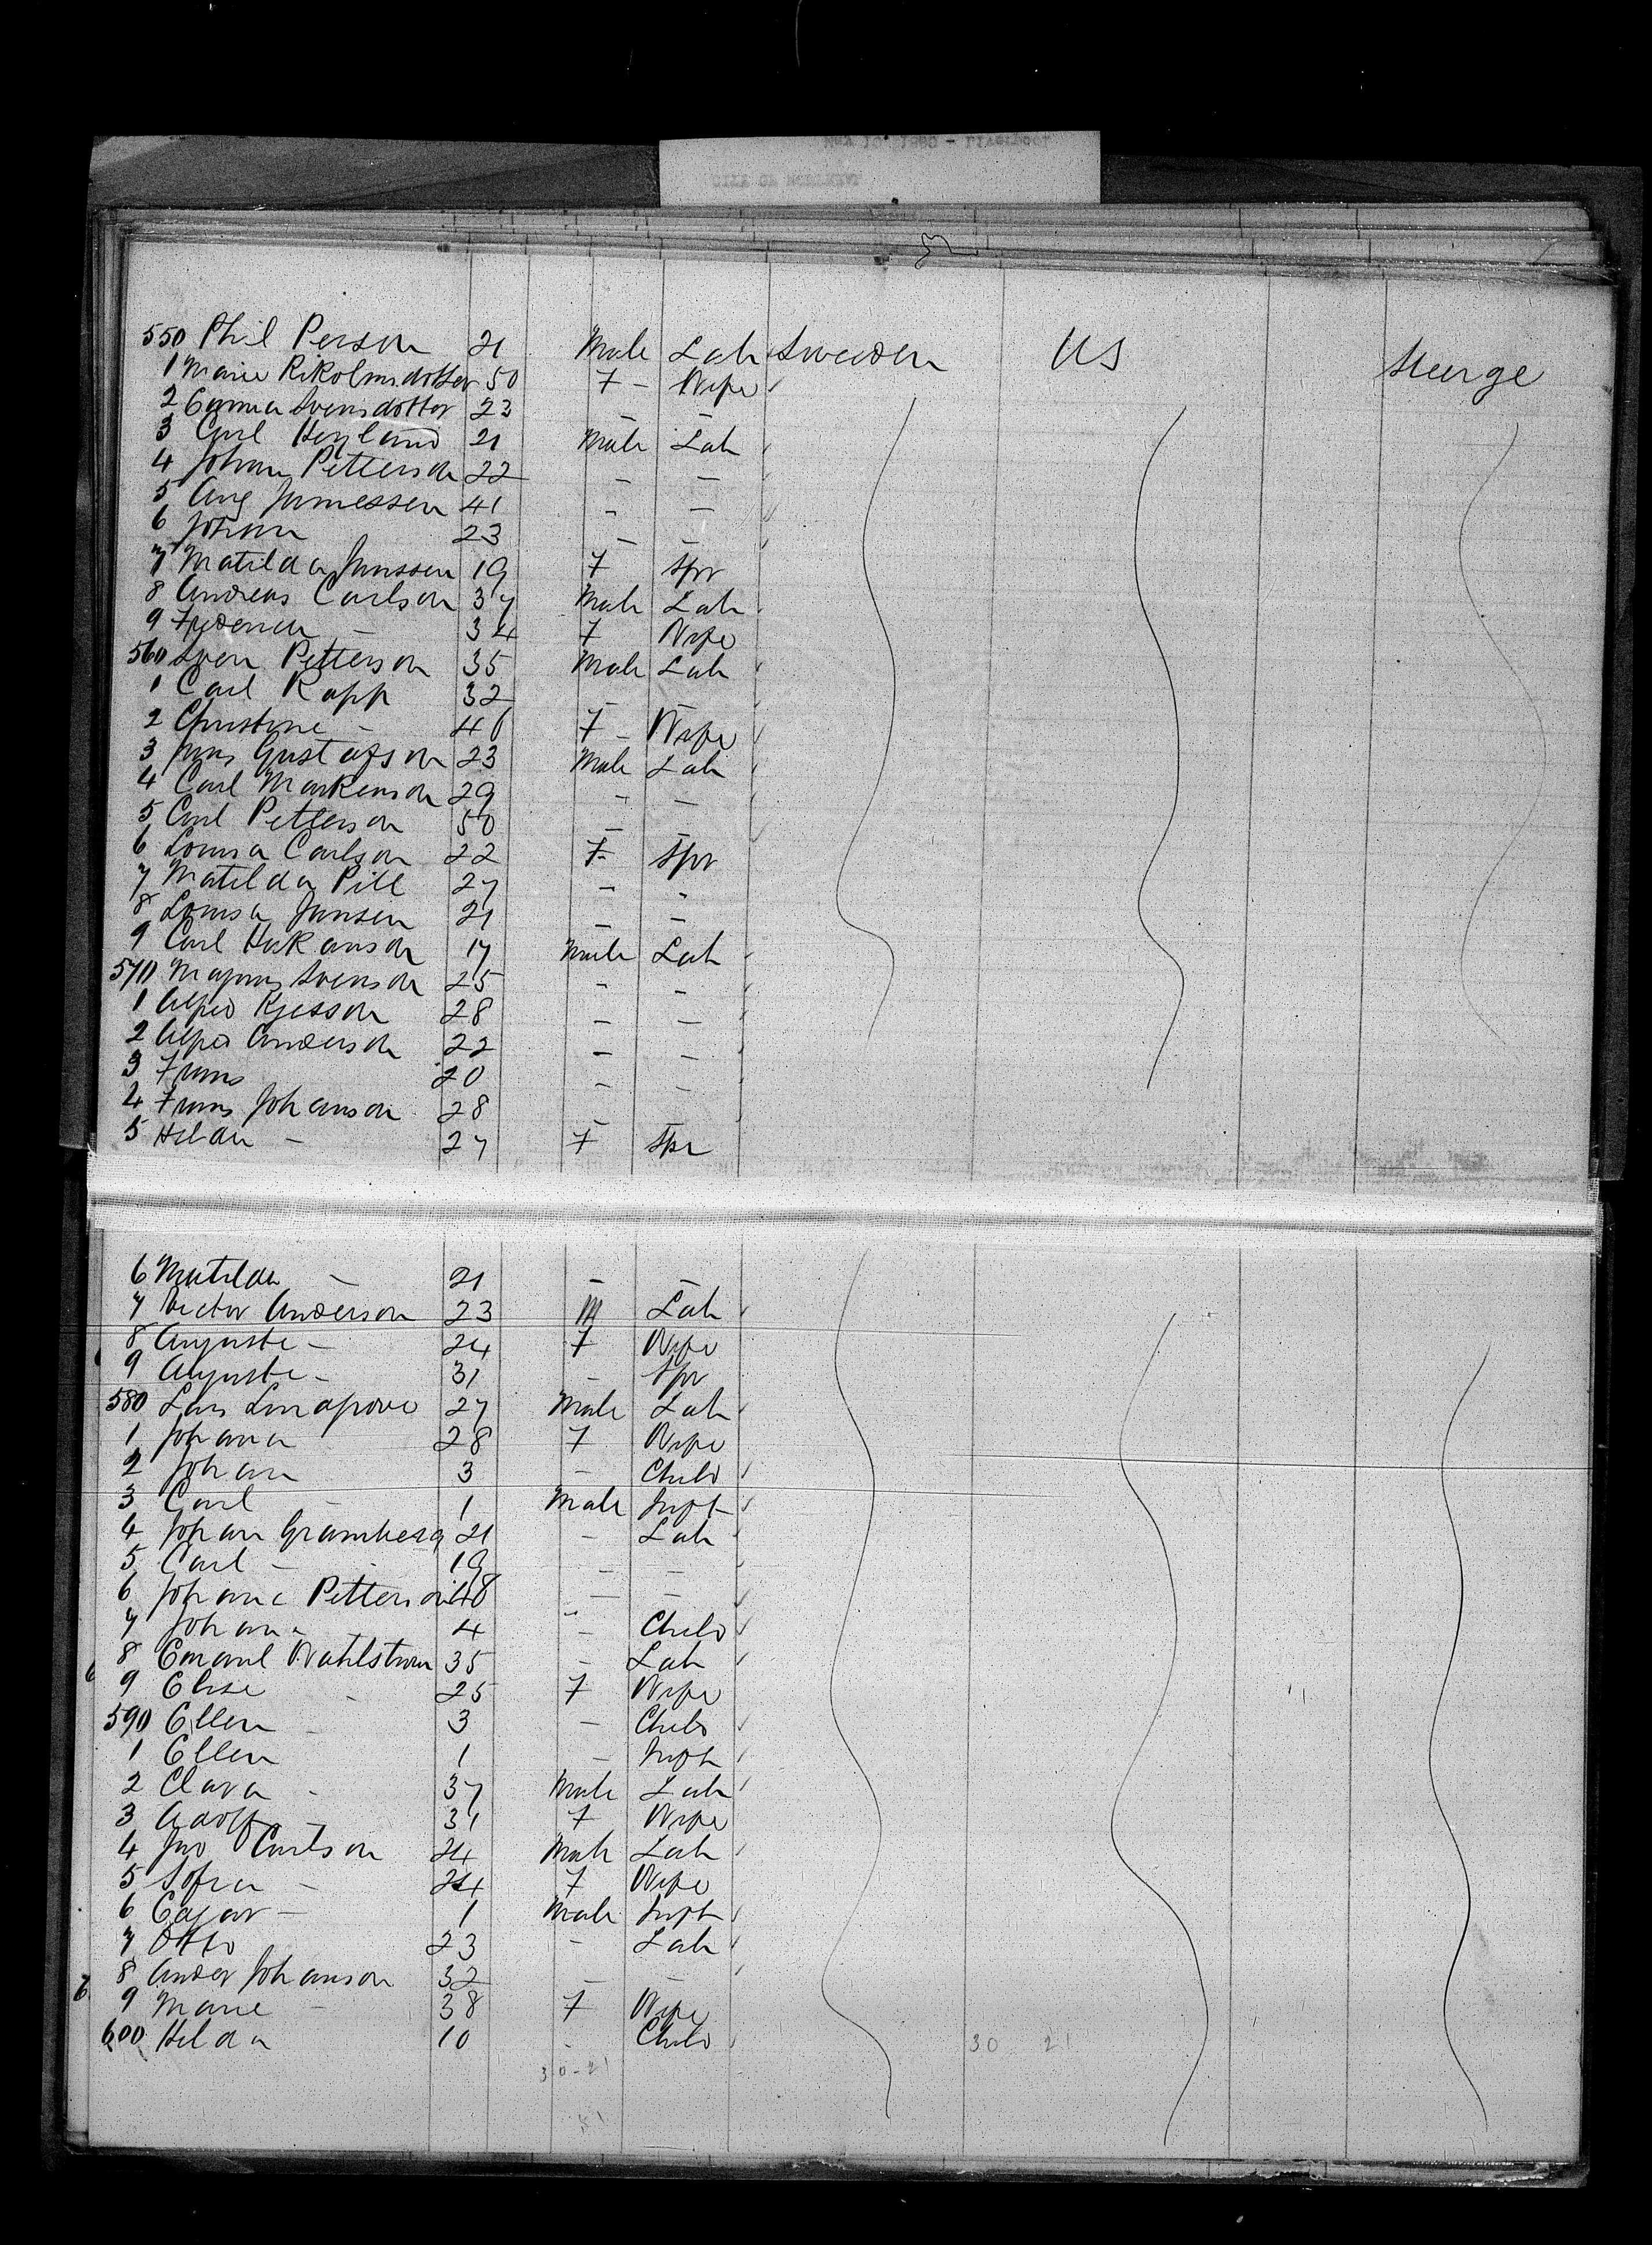 550 Phil Person 21 Male Lab Sweden US Steerge
1 Marie Rikolmsdotter 50 F - Wife
2 Emma Svensdotter 23 - -
3 Carl Hoglund 21 Male Lab
4 Johan Petterson 22 - -
5 Aug Jamessen 41 - -
6 Johan 23 - -
7 Matilda Janssen 19 F Spr
8 Andreas Carlson 37 Male Lab
9 Frederica - 34 F Wife
560 Sven Petterson 35 Male Lab
1 Carl Rapp 32 - -
2 Christine - 40 F - Wife
3 Jons Gustafson 23 Male Lab
4 Carl Markenson 29 - -
5 Carl Petterson 50 - -
6 Louisa Carlson 22 F Spr
7 Matilda Pill 27 - -
8 Louisa Jansen 21 - -
9 Carl Hakanson 17 Male Lab
570 Magnus Svenson 25 - -
1 Alfred 28 - -
2 Alfred Anderson 22 - -
3 Frans 20 - -
4 Frans Johanson 28 - -
5 Hilda - 27 F Spr
6 Matilda - 21 - -
7 Victor Anderson 23 M Lab
8 Auguste - 24 F Wife
9 Auguste - 31 - Spr
580 Lars 27 Male Lab
1 Johana 28 F Wife
2 Johan 3 - Child
3 Carl - 1 Male Inft
4 Johan Gramberg 21 - Lab
5 Carl - 19 - -
6 Johane Petterson 48 - -
7 Johana 4 - Child
8 Emanl Wahlstrom 35 - Lab
9 Elise - 25 F Wife
590 Ellen - 3 - Child
1 Ellen 1 - Inft
2 Clara - 37 Male Lab
3 Adolf - 31 F Wife
4 Jno Carlson 24 Male Lab
5 Sofia - 24 F Wife
6 Edgar - 1 Male Inft
7 Otto 23 - Lab
8 Ander Johanson 32 - -
9 Marie - 38 F Wife
600 Hilda 10 - Child
30 21
30-21